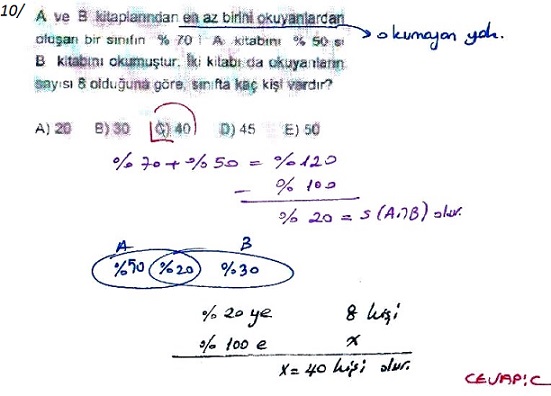 10/ A ve B kitaplarından en az birini okuyanlardan
oluşan bir sınıfın % 70 i A kitabını % 50 si
→ okumayan yok.
B kitabını okumuştur. İki kitabı da okuyanların
sayısı 8 olduğuna göre, sınıfta kaç kişi vardır?
A) 20 B) 30 C) 40 D) 45 E) 50
% 70 + % 50 = % 120
- % 100
% 20 = s(A∩B) olur.
A B
%50 %20 %30
% 20 ye 8 kişi
% 100 e x
x = 40 kişi olur.
CEVAP: C